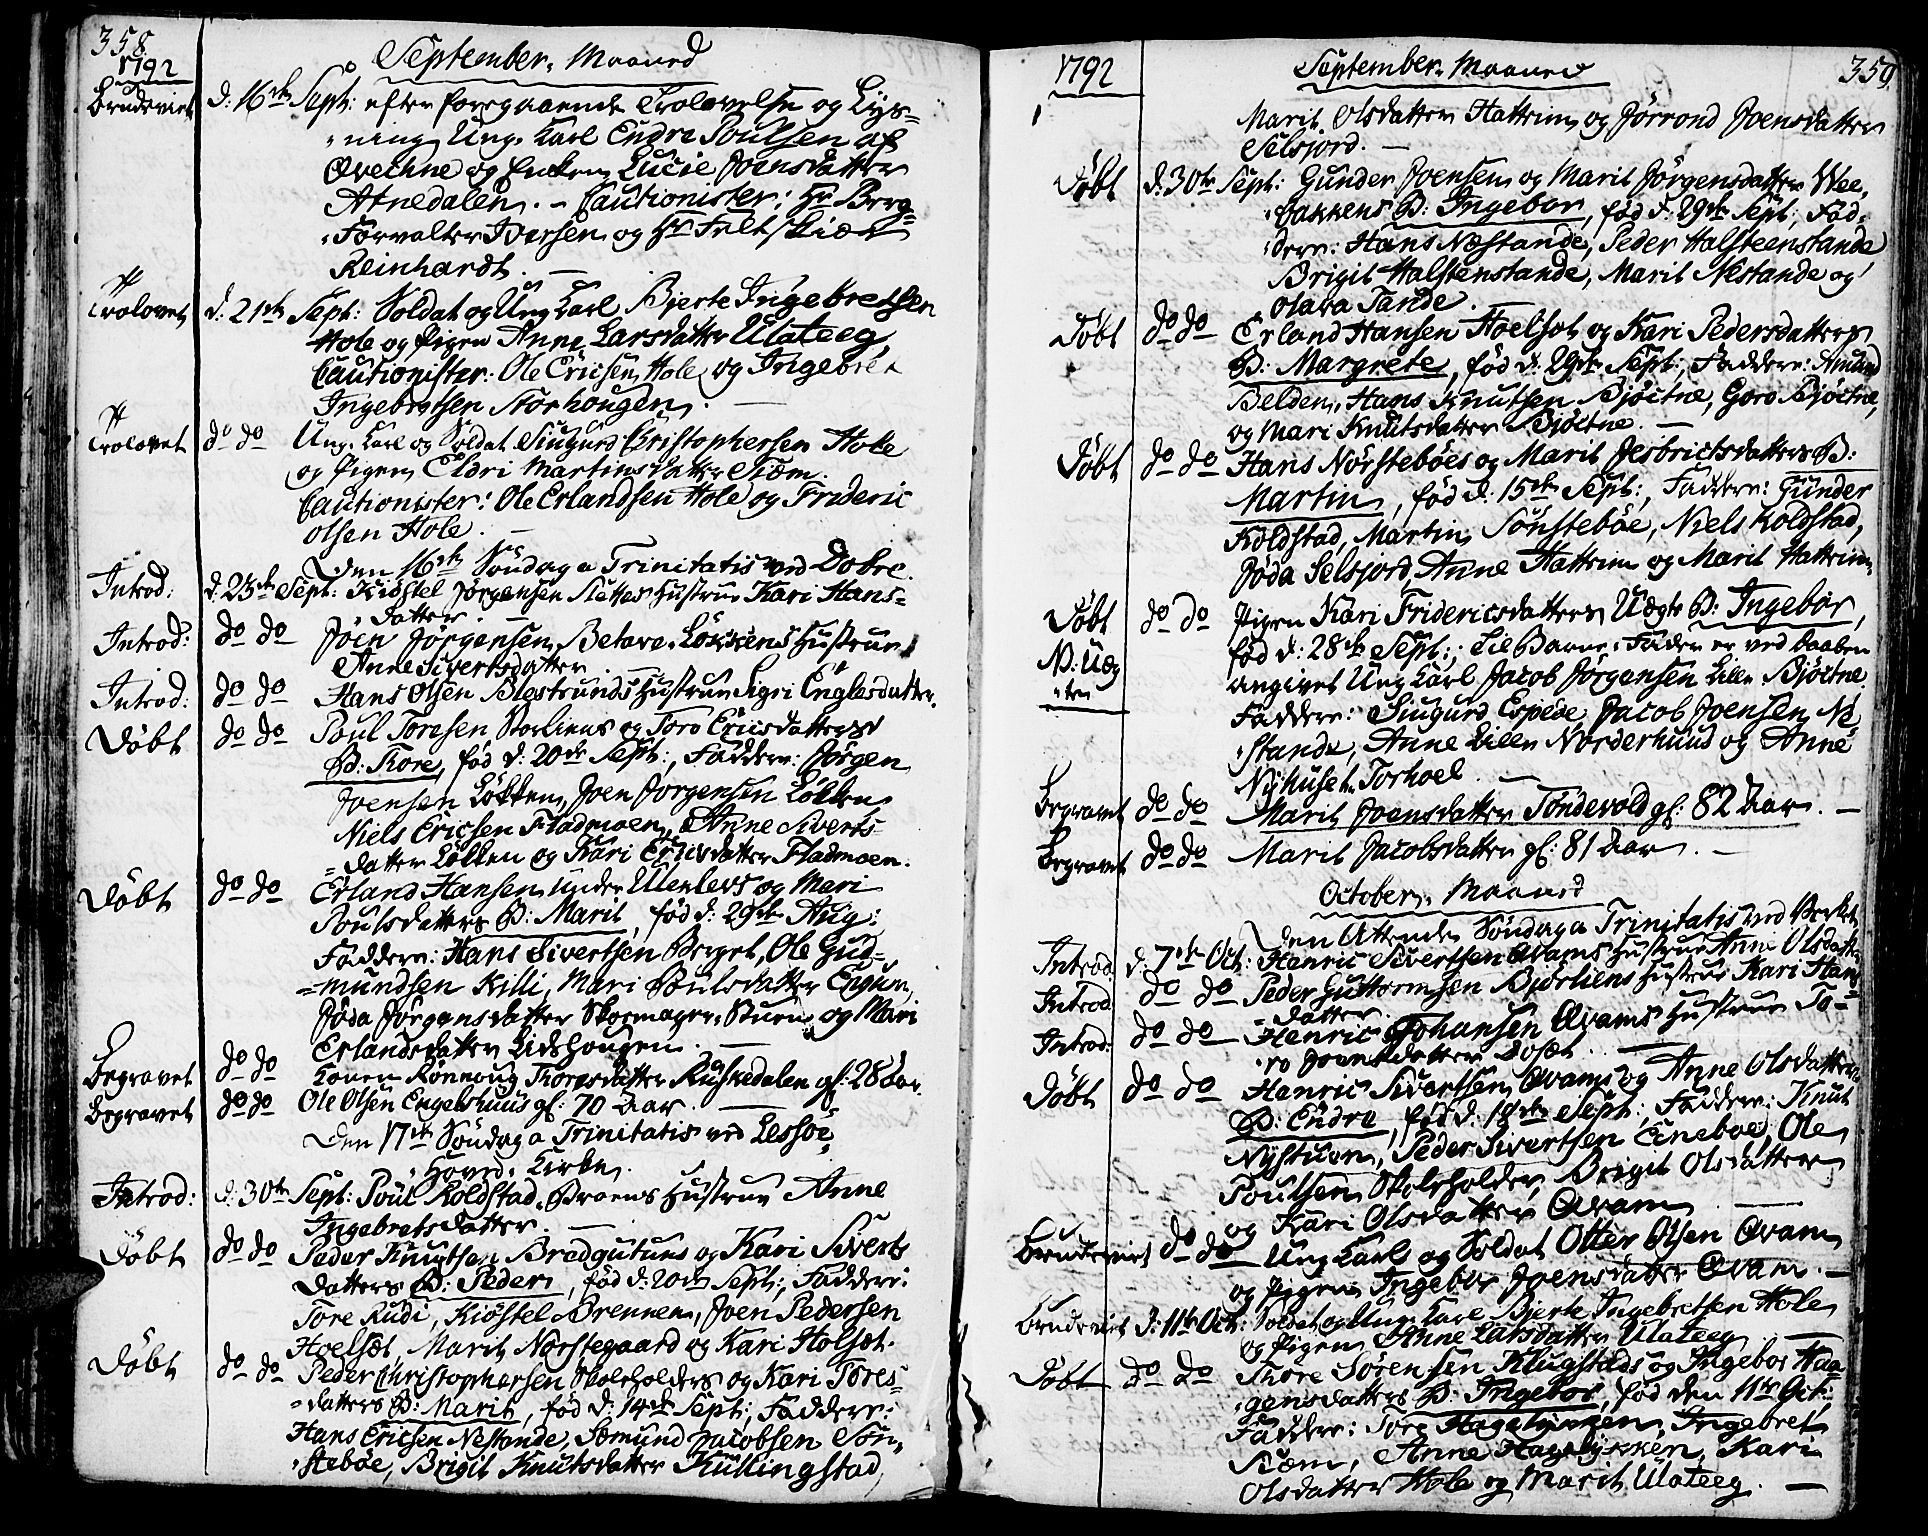 358.
1792
September-Maaned
Brudeviet d: 16de Sept: efter foregaaende Trolovelse og Lys-
ning Ung-Karl Endre Poulsen af
Qvechne og Enken Lucie Joensdatter
Atnedalen. - Cautionister: Hr Berg-
Forvalter Iversen og Hr Felt-Skiær
Reinhardt. -
Trolovet d: 21de Sept: Soldat og Ung Karl Bjerte Ingebretsen
Hole og Pigen Anne Larsdatter Ulateeg,
Cautionister: Ole Ericsen Hole og Ingebret
Ingebretsen Storhougen. -
Trolovet do do Ung-Karl og Soldat Siugurd Christophersen Hole
og Pigen Eldri Martinsdatter Siæm.
Cautionister: Ole Erlandsen Hole og Frideric
Olsen Hole. -
Den 16de Søndag a Trinitatis ved Dofre.
Introd: d: 23de Sept: Kiøstel Jørgensen Slettes Hustrue Kari Hans-
datter. -
Introd: do do Joen Jørgensen Betave-Løkkens Hustrue
Anne Sivertsdatter. -
Introd: do do Hans Olsen Blestrunds Hustrue Sigri Englesdatter.
Døbt do do Poul Toresen Storliens og Toro Ericsdatters
B: Tore, fød d: 20de Sept:, Faddere: Jørgen
Joensen Løkken, Joen Jørgensen Løkken
Niels Ericsen Fladmoen, Anne Siverts-
datter Løkken og Kari Ericsdatter Fladmoen.
Døbt do do Erland Hansen under Ulenlevs og Mari
Poulsdatters B: Marit, fød d: 29de Aug:
Faddere: Hans Sivertsen Berget, Ole Gud-
mundsen Killi, Mari Poulsdatter Engum,
Jøda Jørgensdatter Skormager-Stuen og Mari
Erlandsdatter Lidshougen. -
Begravet do do Konen Rønnoug Thoresdatter Ruskedalen gl: 28 Aar.
Begravet do do Ole Olsen Engelshuus gl: 70 Aar. -
Den 17de Søndag a Trinitatis ved Lessøe
Hoved-Kirke.
Introd: d: 30te Sept: Poul Koldstad-Broens Hustrue Anne
Ingebretsdatter. -
Døbt do do Peder Knutsen Bredgutuns og Kari Siverts
datters B: Peder, fød d: 20de Sept:, Faddere:
Tore Rudi, Kiøstel Brennen, Joen Pedersen
Hoelsæt, Marit Norstegaard og Kari Holsæt.
Døbt do do Peder Christophersen Skoleholders og Kari Tores-
datters B: Marit, fød d: 14de Sept:, Faddere:
Hans Ericsen Nestande, Sæmund Jacobsen Søn-
stebøe, Brigit Knutsdatter Kullingstad,
1792
September-Maaned
359
Marit Olsdatter Hattrim og Jørrond Joensdatter
Selsjord. -
Døbt d: 30te Sept: Gunder Joensen og Marit Jørgensdatter Wee-
bakkens B: Ingebor, fød d: 29de Sept:, Fad-
dere: Hans Næstande, Peder Halsteenstande
Brigit Halstenstande, Marit Nestande og
Olava Tande.
Døbt do do Erland Hansen Hoelsæt og Kari Pedersdatters
B: Margrete, fød d: 29de Sept:, Faddere: Amund
Belden, Hans Knutsen Bjøitne, Goro Bjøitne,
og Mari Knutsdatter Bjøitne. -
Døbt do do Hans Nørstebøes og Marit Jesbrictsdatters B:
Martin, fød d: 15de Sept:, Faddere: Gunder
Koldstad, Martin Sønstebøe, Niels Koldstad,
Jøda Selsjord, Anne Hattrim og Marit Hattrim.
Døbt do do Pigen Kari Fridericsdatters Uægte B: Ingebor,
N: Uæg-
te
fød d: 28de Sept:, til Barne-Fader er ved Daaben
angivet Ung Karl Jacob Jørgensen Lille Bjøitne
Faddere: Siugurd Espede, Jacob Joensen Ne-
stande, Anne Lille Norderhuus og Anne
Nyhuset-Torhoel. -
Begravet do do Marit Joensdatter Tøndevold gl: 82 Aar. -
Begravet do do Marit Jacobsdatter gl: 81 Aar. -
October-Maaned
Den Attende Søndag a Trinitatis ved Verket
Introd d: 7de Oct: Henric Sivertsen Qvams Hustrue Anne Olsdatter
Introd do do Peder Guttormsen Bjørliens Hustrue Kari Hans-
datter.
Introd: do do Henric Johansen Qvams Hustrue To-
ro Joensdatter Dosæt. -
Døbt do do Henric Sivertsen Qvams og Anne Olsdatters
B: Endre, fød d: 18de Sept:, Faddere: Knut
Nystuen, Peder Sivertsen Eneboe, Ole
Poulsen Skoleholder, Brigit Olsdatter
og Kari Olsdatter Qvam. -
Brudeviet do do Ung Karl og Soldat Otter Olsen Qvam
og Pigen Ingebor Joensdatter Qvam. -
Brudeviet d: 11te Oct: Soldat og Ung Karl Bjerte Ingebretsen Hole
og Pigen Anne Larsdatter Ulateeg. -
Døbt do do Thore Sørensen Klugstads og Ingebor Haa-
gensdatters B: Ingebor, fød den 11te Oct:,
Faddere: Tore Hagelykken, Ingebret
Siæm, Anne Hagelykken, Kari
Olsdatter Hole og Marit Ulateeg. -